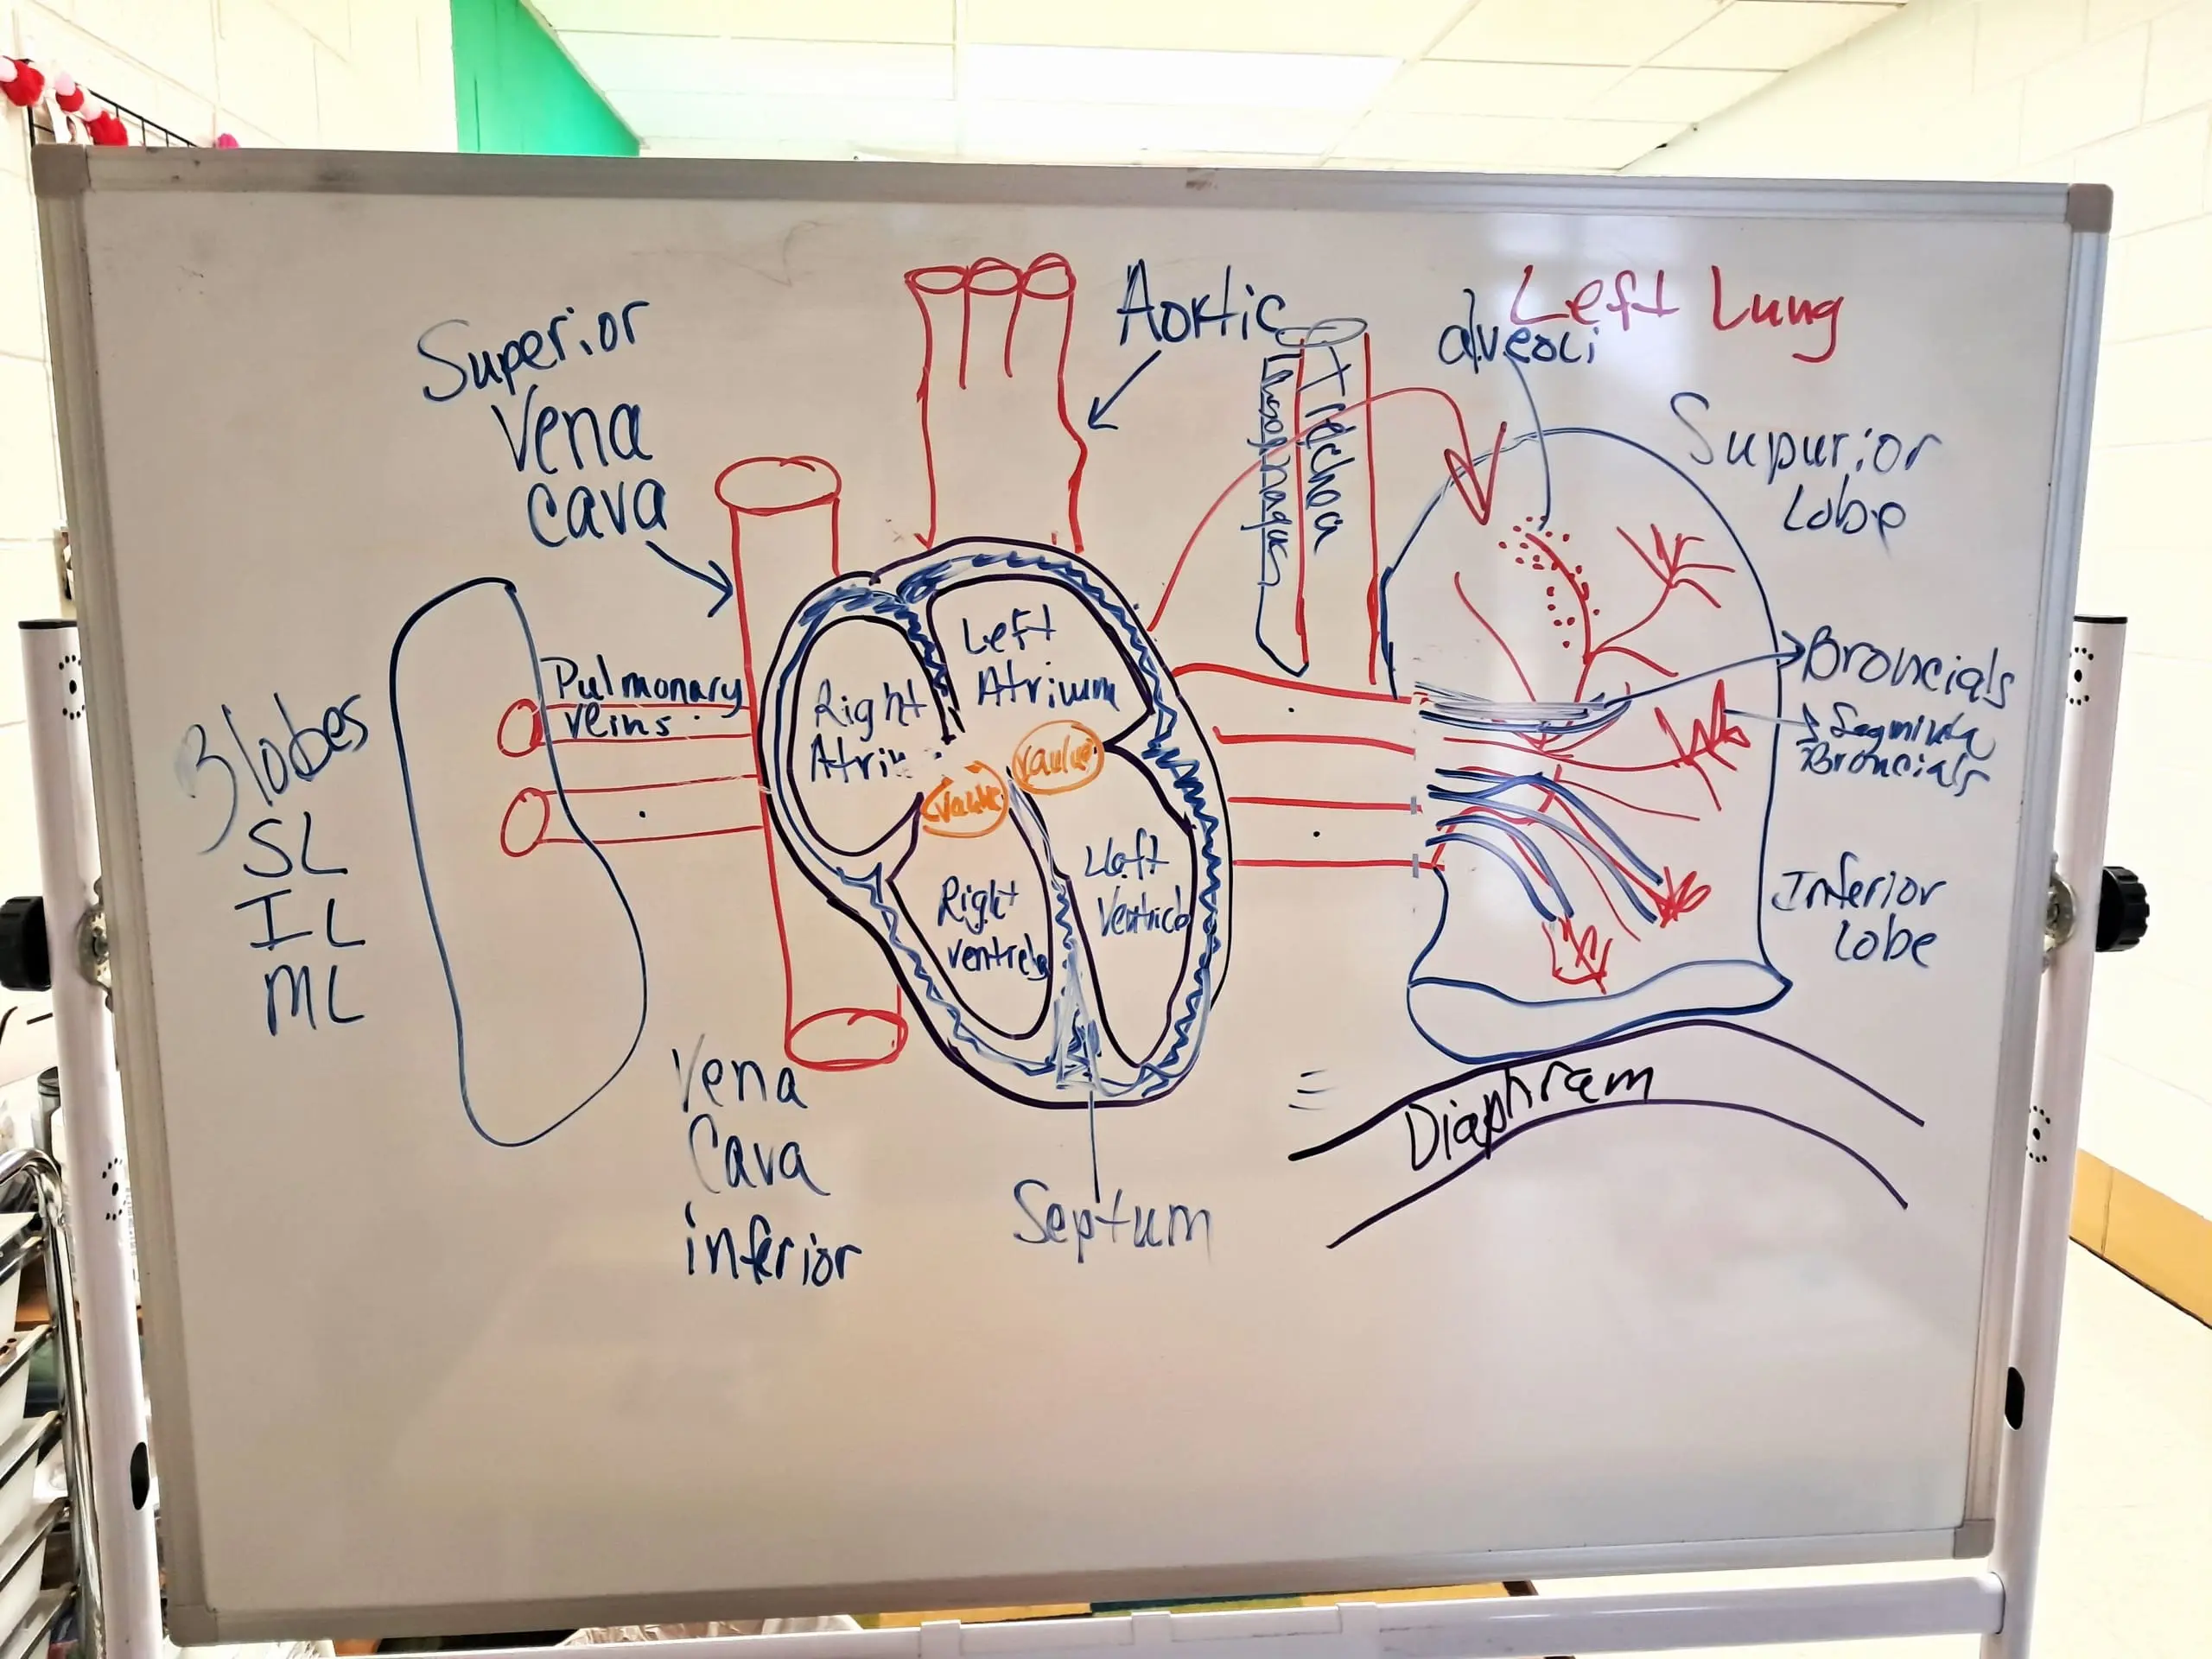 Superior
Vena
Cava
Aortic
Trachea
alveoli
Left Lung
Supurior
Lobe
Pulmonary
veins.
3 lobes
SL
IL
ML
Left
Atrium
Right
valve
Left
Right
Broncials
Broncials
Inferior
lobe
Diaphram
Vena
Cava
inferior
Septum